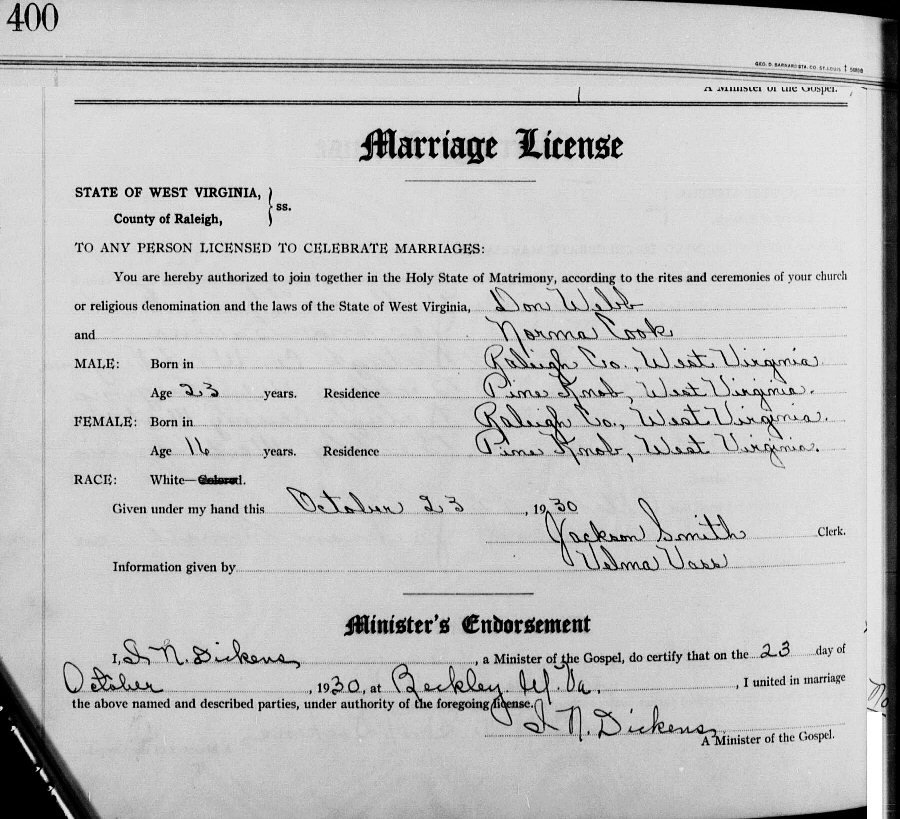 400
GEO. D. BARNARD STA. CO. ST. LOUIS
A Minister of the Gospel.
Marriage License
STATE OF WEST VIRGINIA, } ss.
County of Raleigh,
TO ANY PERSON LICENSED TO CELEBRATE MARRIAGES:
You are hereby authorized to join together in the Holy State of Matrimony, according to the rites and ceremonies of your church
or religious denomination and the laws of the State of West Virginia, Don Webb
and Norma Cook
MALE: Born in Raleigh Co., West Virginia.
Age 23 years. Residence Pine Knob, West Virginia.
FEMALE: Born in Raleigh Co., West Virginia.
Age 16 years. Residence Pine Knob, West Virginia.
RACE: White—Colored.
Given under my hand this October 23, 1930
Jackson Smith Clerk.
Information given by Velma Vass
Minister's Endorsement
I, I. N. Dickens, a Minister of the Gospel, do certify that on the 23 day of
October, 1930, at Beckley, W. Va., I united in marriage
the above named and described parties, under authority of the foregoing license.
I. N. Dickens,
A Minister of the Gospel.
No